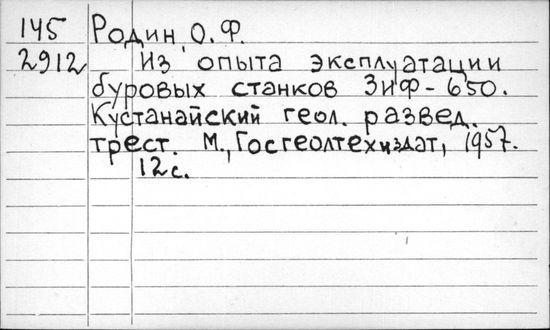 145 Родин О. Ф.
2912 Из опыта эксплуатации
буровых станков ЗИФ-650.
Кустанайский геол. развед.
трест. М., Госгеолтехиздат, 1957.
12 с.